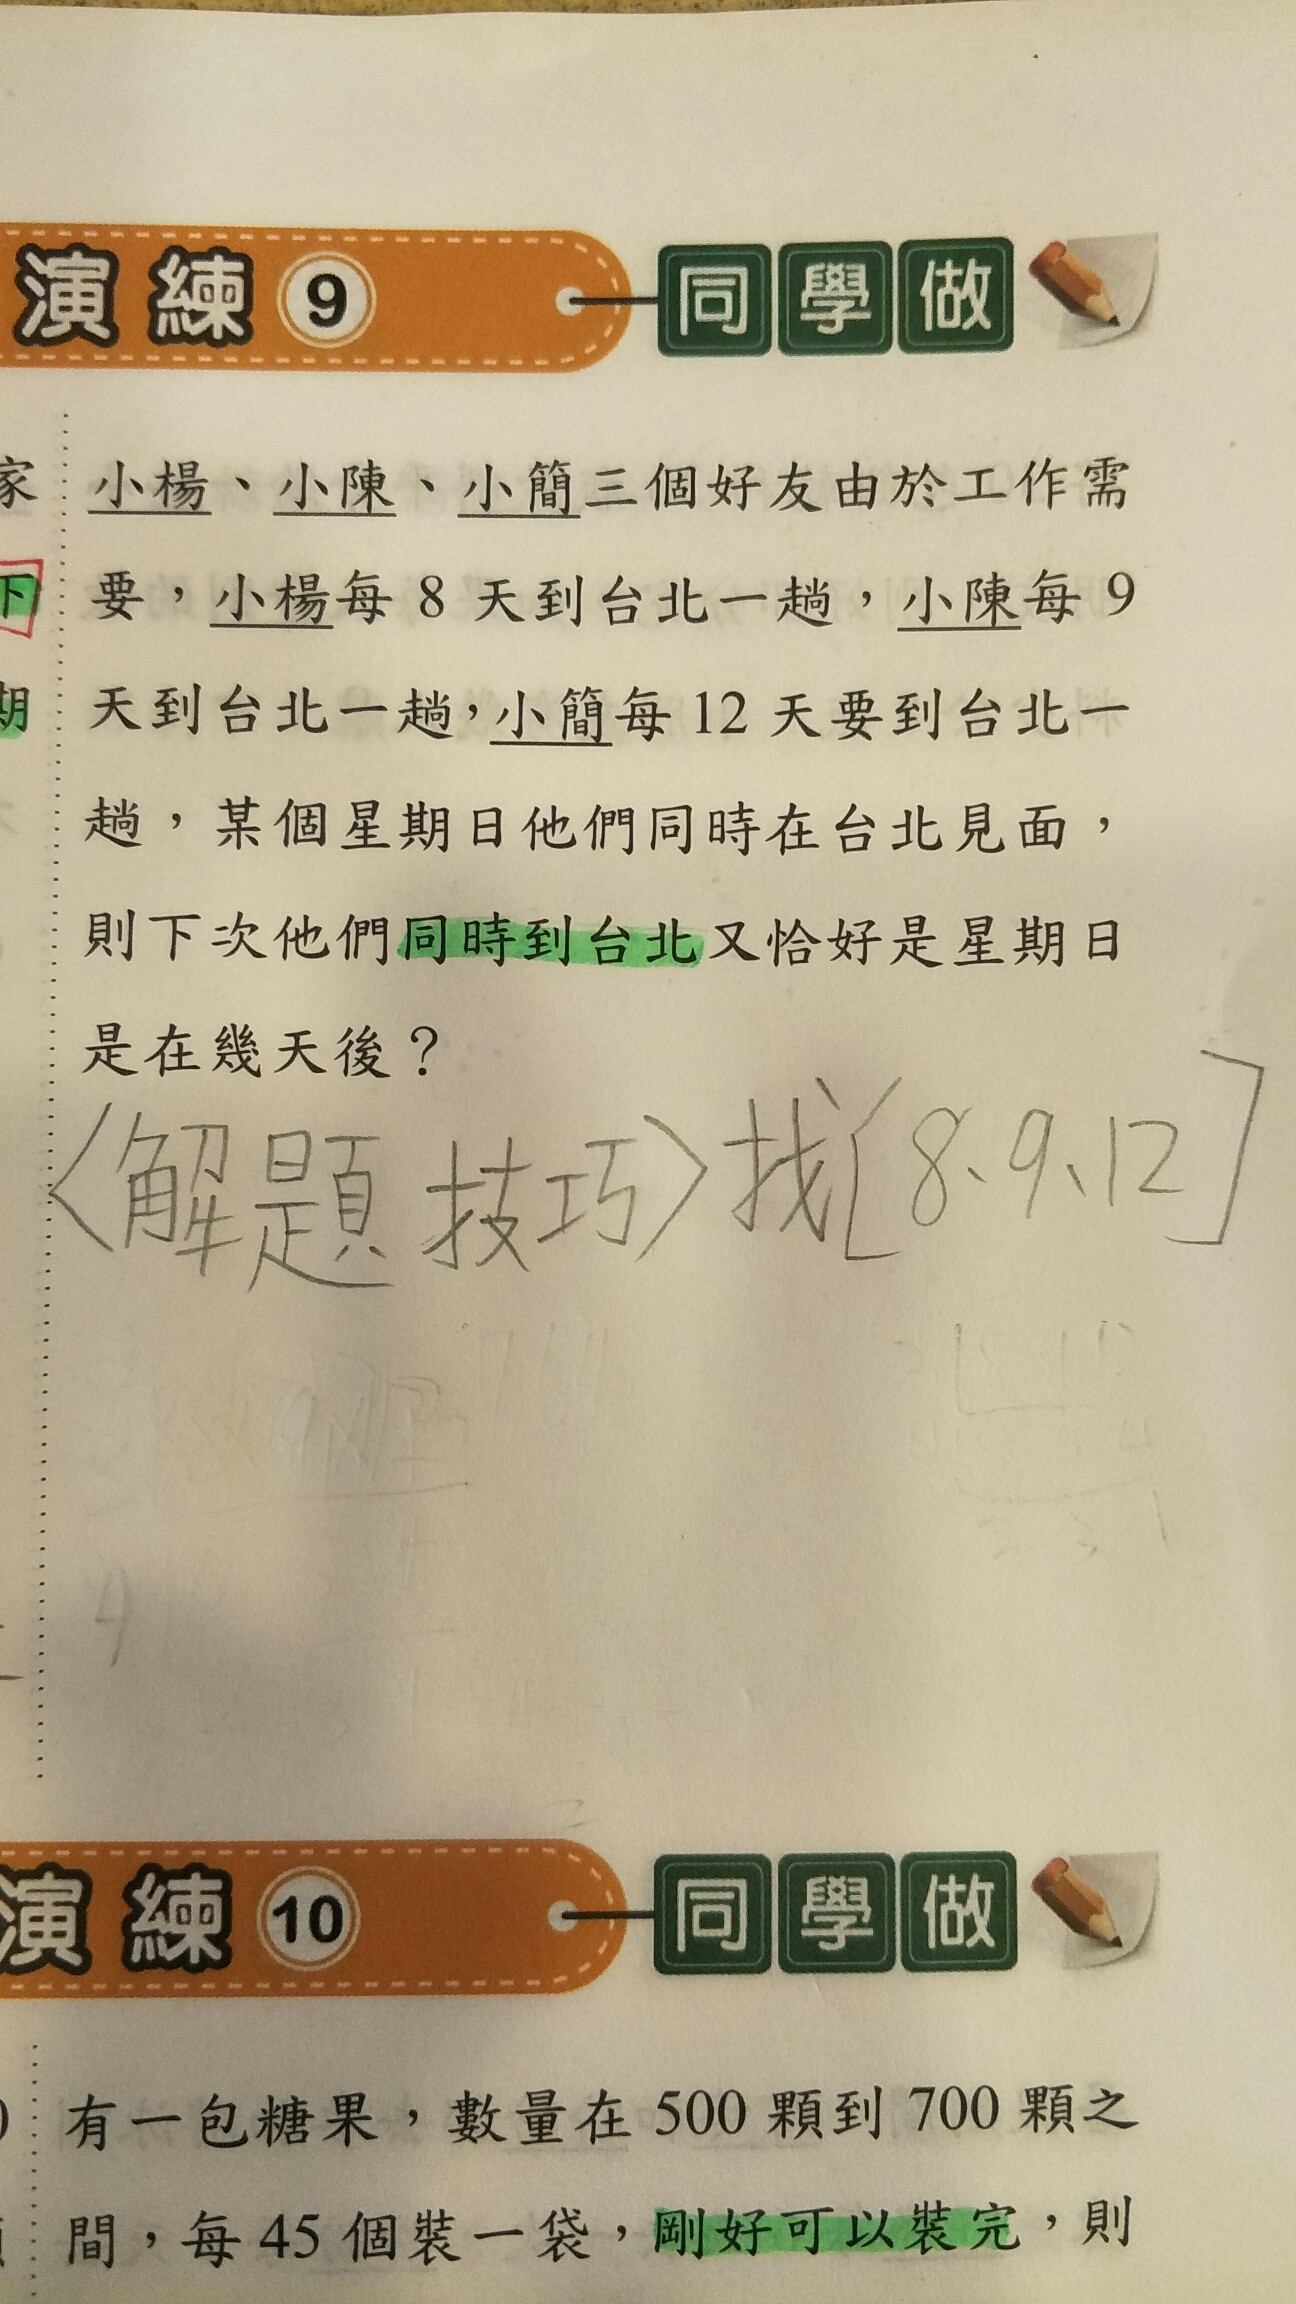 演練9 同學做
家 小楊、小陳、小簡三個好友由於工作需
下 要，小楊每 8 天到台北一趟，小陳每 9
期 天到台北一趟，小簡每 12 天要到台北一
趟，某個星期日他們同時在台北見面，
則下次他們同時到台北又恰好是星期日
是在幾天後？
〈解題技巧〉找[8、9、12]
演練10 同學做
有一包糖果，數量在 500 顆到 700 顆之
間，每 45 個裝一袋，剛好可以裝完，則